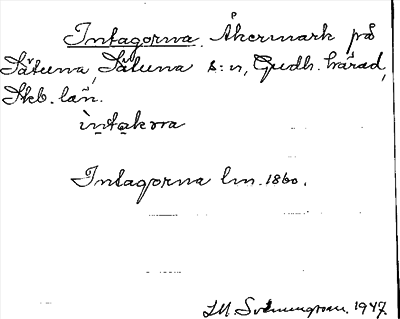 Intagorna. Åkermark på
Sätuna, Sätuna s:n, Gudh. härad,
Skb. län.
ìntakṇa
Intagorna lm. 1860.
1947